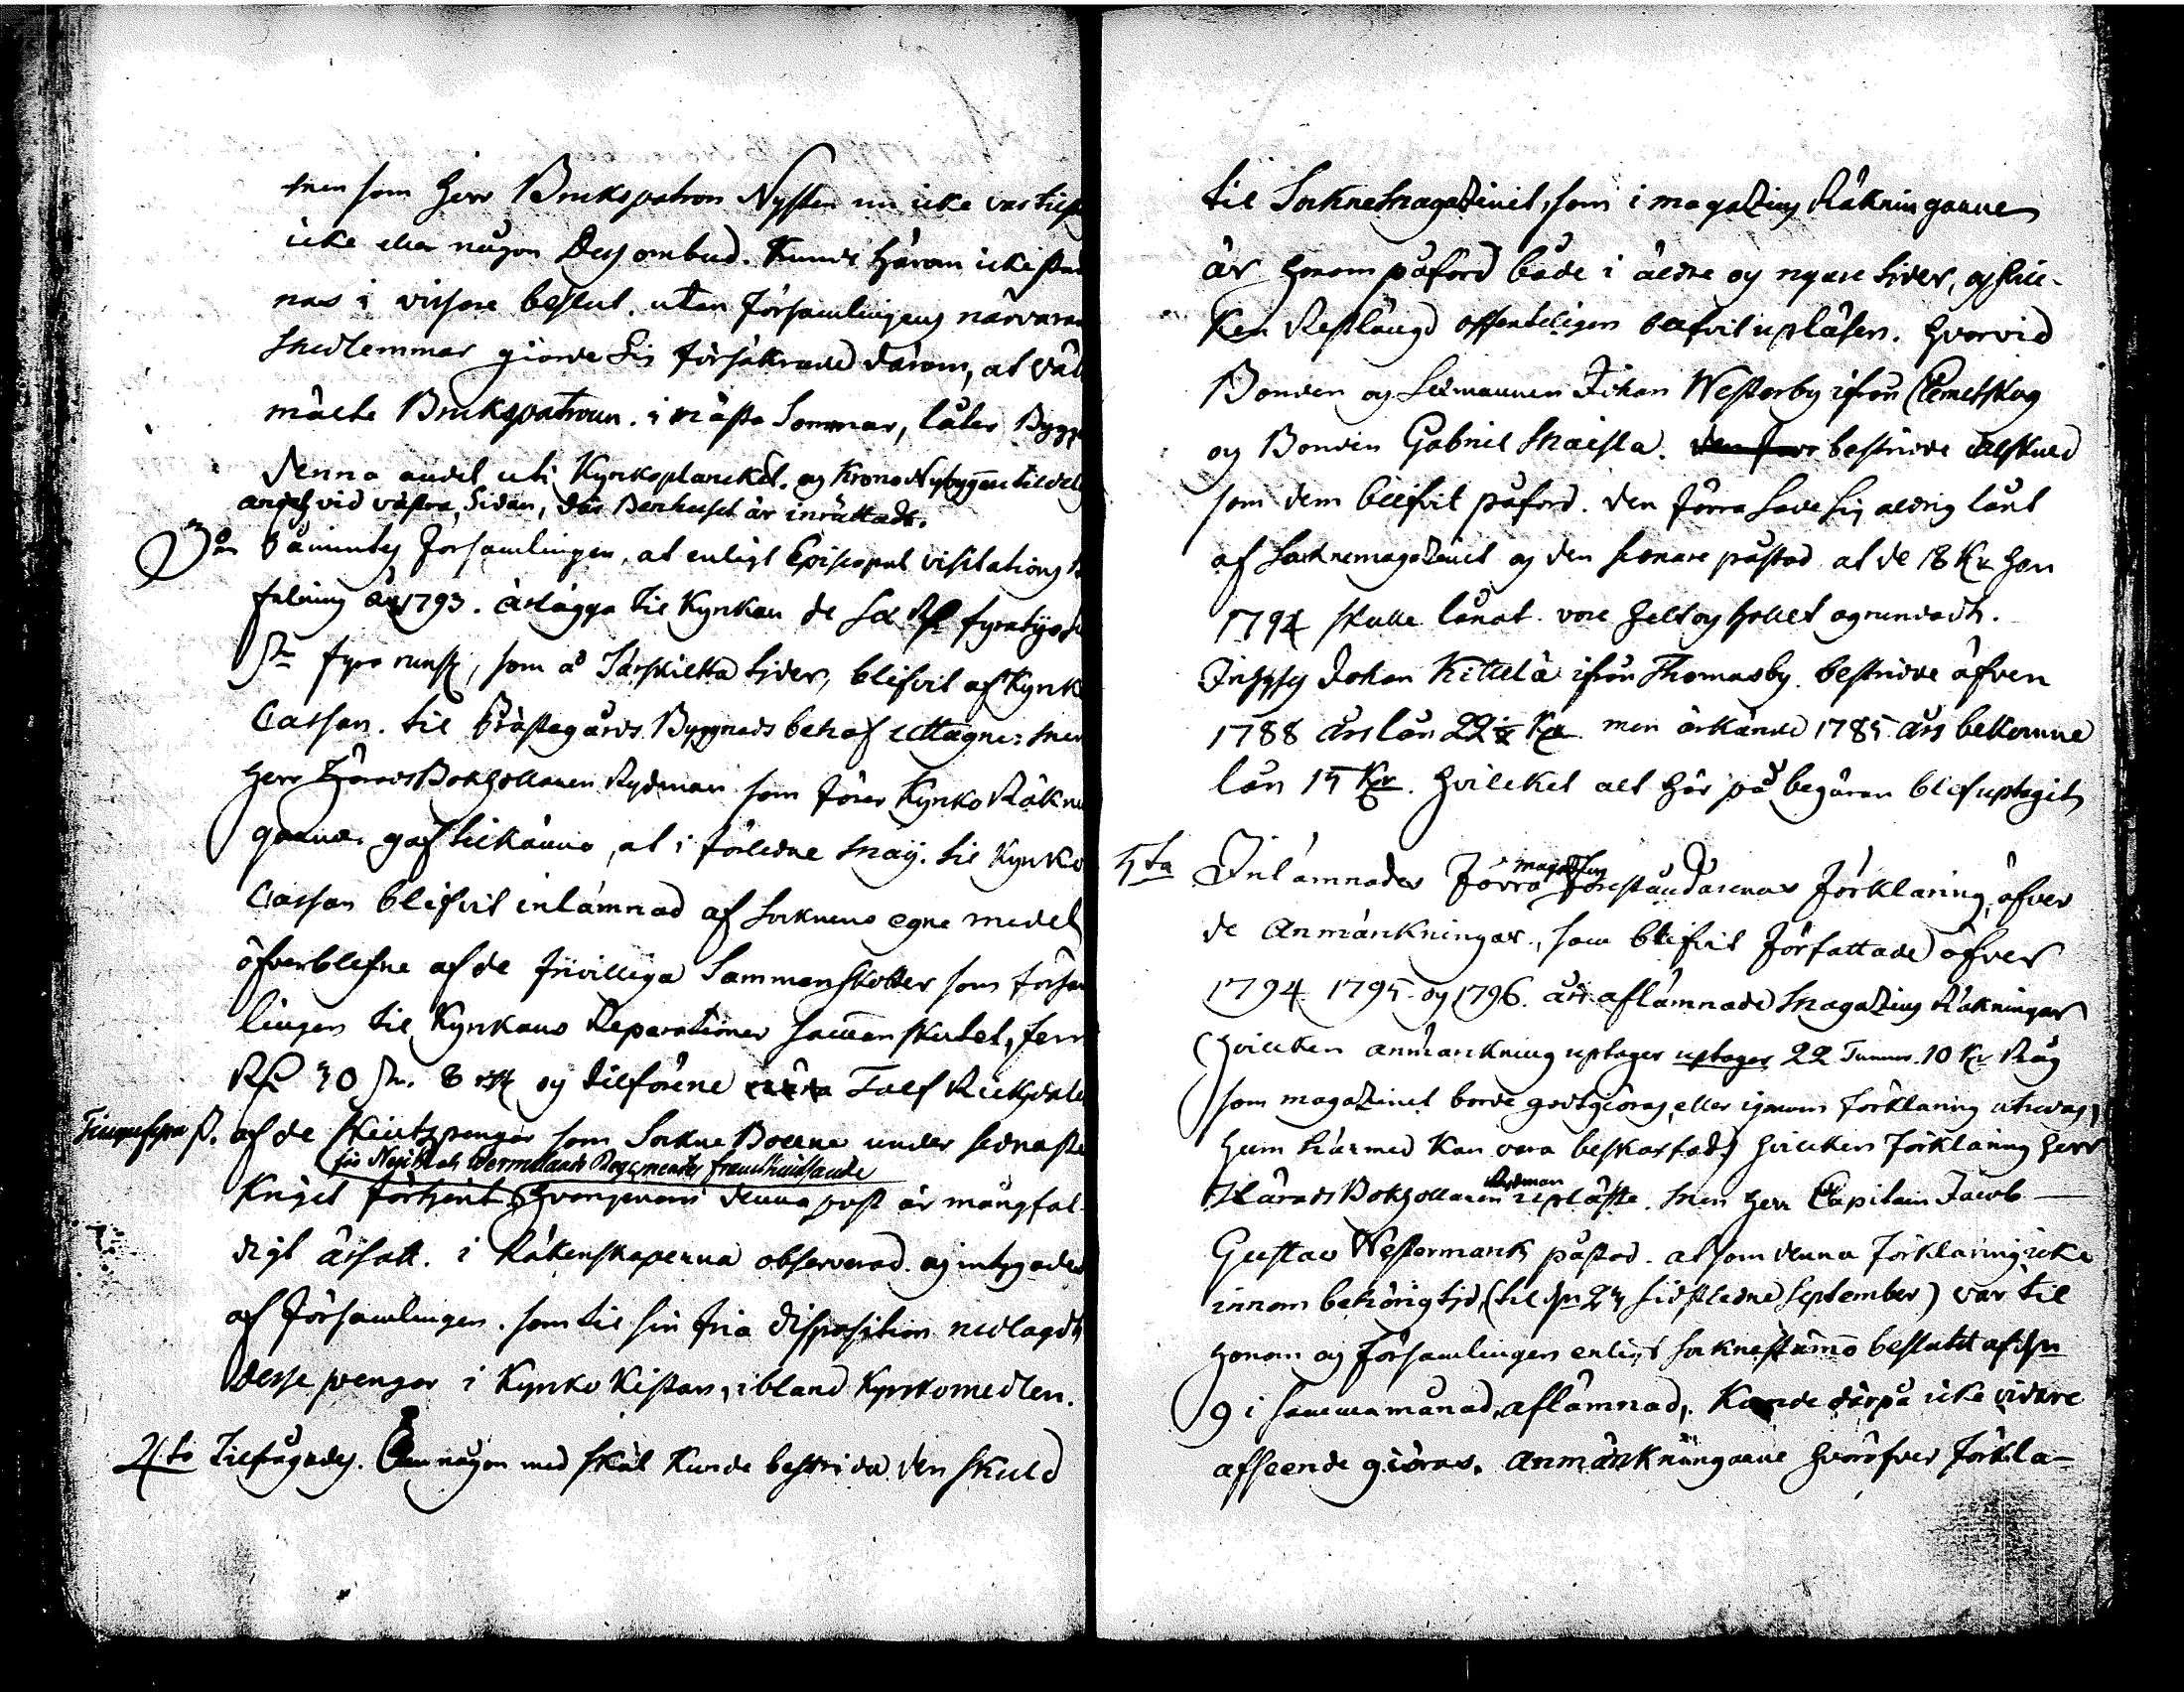 men som Herr Brukspatron Nysten nu icke var tilst
icke eller någon Dess ombud. Kunde härom icke stad
nas i vissare beslut. utan Församlingens närvaran
Medlemmar giorde sig försäkrade därom, at väl
mälte Brukspatroun. i nästa Sommar, låter Bygg
denna andel uti Kyrkoplancket. og Krono Nybyggare tildel
andel vid västra, Sidan, där Benhuset är inrättadt.
3:o Påmintes Församlingen, at enligt Episcopal visitations B
falning år 1793. återlägga til Kyrkan de Sex Rd fyratijo
ß fyra runst, som å särskilta tider, blifvit af Kyrk
Cassan. til Prästegårds Byggnads behof uttagne: men
Herr HäradsBokhollaren Rydman som förer Kyrko Räkni
garna gaf tilkänna, at i förledne Maij. til Kyrko
Cassan blifvit inlämnad af Soknens egne medel
öfverblefne af de frivilliga Sammanskotter som försam
lingen til Kyrkans Reparationer samanskutet, fem
Rd 30 ß. 8 rst og tilförene Tolf Riksdale
Tiugufyra ß. af de Skiutzpengar som Sokne Boerne under sednaste
för Nerikes och Vermelands Regementes framskiutsande
Kriget förtjent, hvarjenom denna post är mångfal
digt ärsatt. i Räkenskaperna observerad. og intygades
af Församlingen. som til sin fria disposition nedlagdt
desse pengar i Kyrko Kistan, ibland Kyrkomedlen.
4:to Tilfrågades. Om någon med skäl Kunde bestrida den skuld
til SokneMagaZinet, som i magaZins Räkningarne
är honom påförd både i äldre og nyare tider, og hvil-
ken Restlängd offenteligen blifvit upläsen. Hvarvid
Bonden og Sexmannen Johan Westerby ifrån Clemetskog
og Bonden Gabriel Maisla. bestridde all skuld
som dem blifvit påförd. den förra sade sig aldrig lånt
af SoknemagaZinet og den senare påstod at de 18 Kr han
1794 skulle lånat. vore helt og hollet ogrundadt.
Inhyses Johan Kittelä ifrån Thomasby. bestridde äfven
1788 års lån 22 Kr men ärkände 1785 års bekomne
lån 15 Kr. hvilcket alt här på begäran blef uptagit
5:ta Inlämnades förra magaZins Föreståndarenas Förklaring, öfver
de Anmärkningar, som blifvit Författade öfver
1794 1795 og 1796. års aflämnade MagaZins Räkningar
(hvilcken anmärkning uptager uptager 22 Tunnor. 10 Kr Råg
som magaZinet borde godtgöras, eller igenom förklaring utredas,
hum härmed kan vara beskaffad) hvilcken Förklaring Herr
HäradsBokhollaren Rydman upläste. Men Herr Capitain Jacob
Gustav Westermark påstod. at som denna Förklaring icke
innom behörig tid, (til den 24 sidstledne September) var til
honom og Församlingen enligt soknestämo beslutet af den
9 i samma månad, aflämnad, Kunde därpå icke vidare
afseende giöras. Anmärkningarne hvaröfver Förkla-